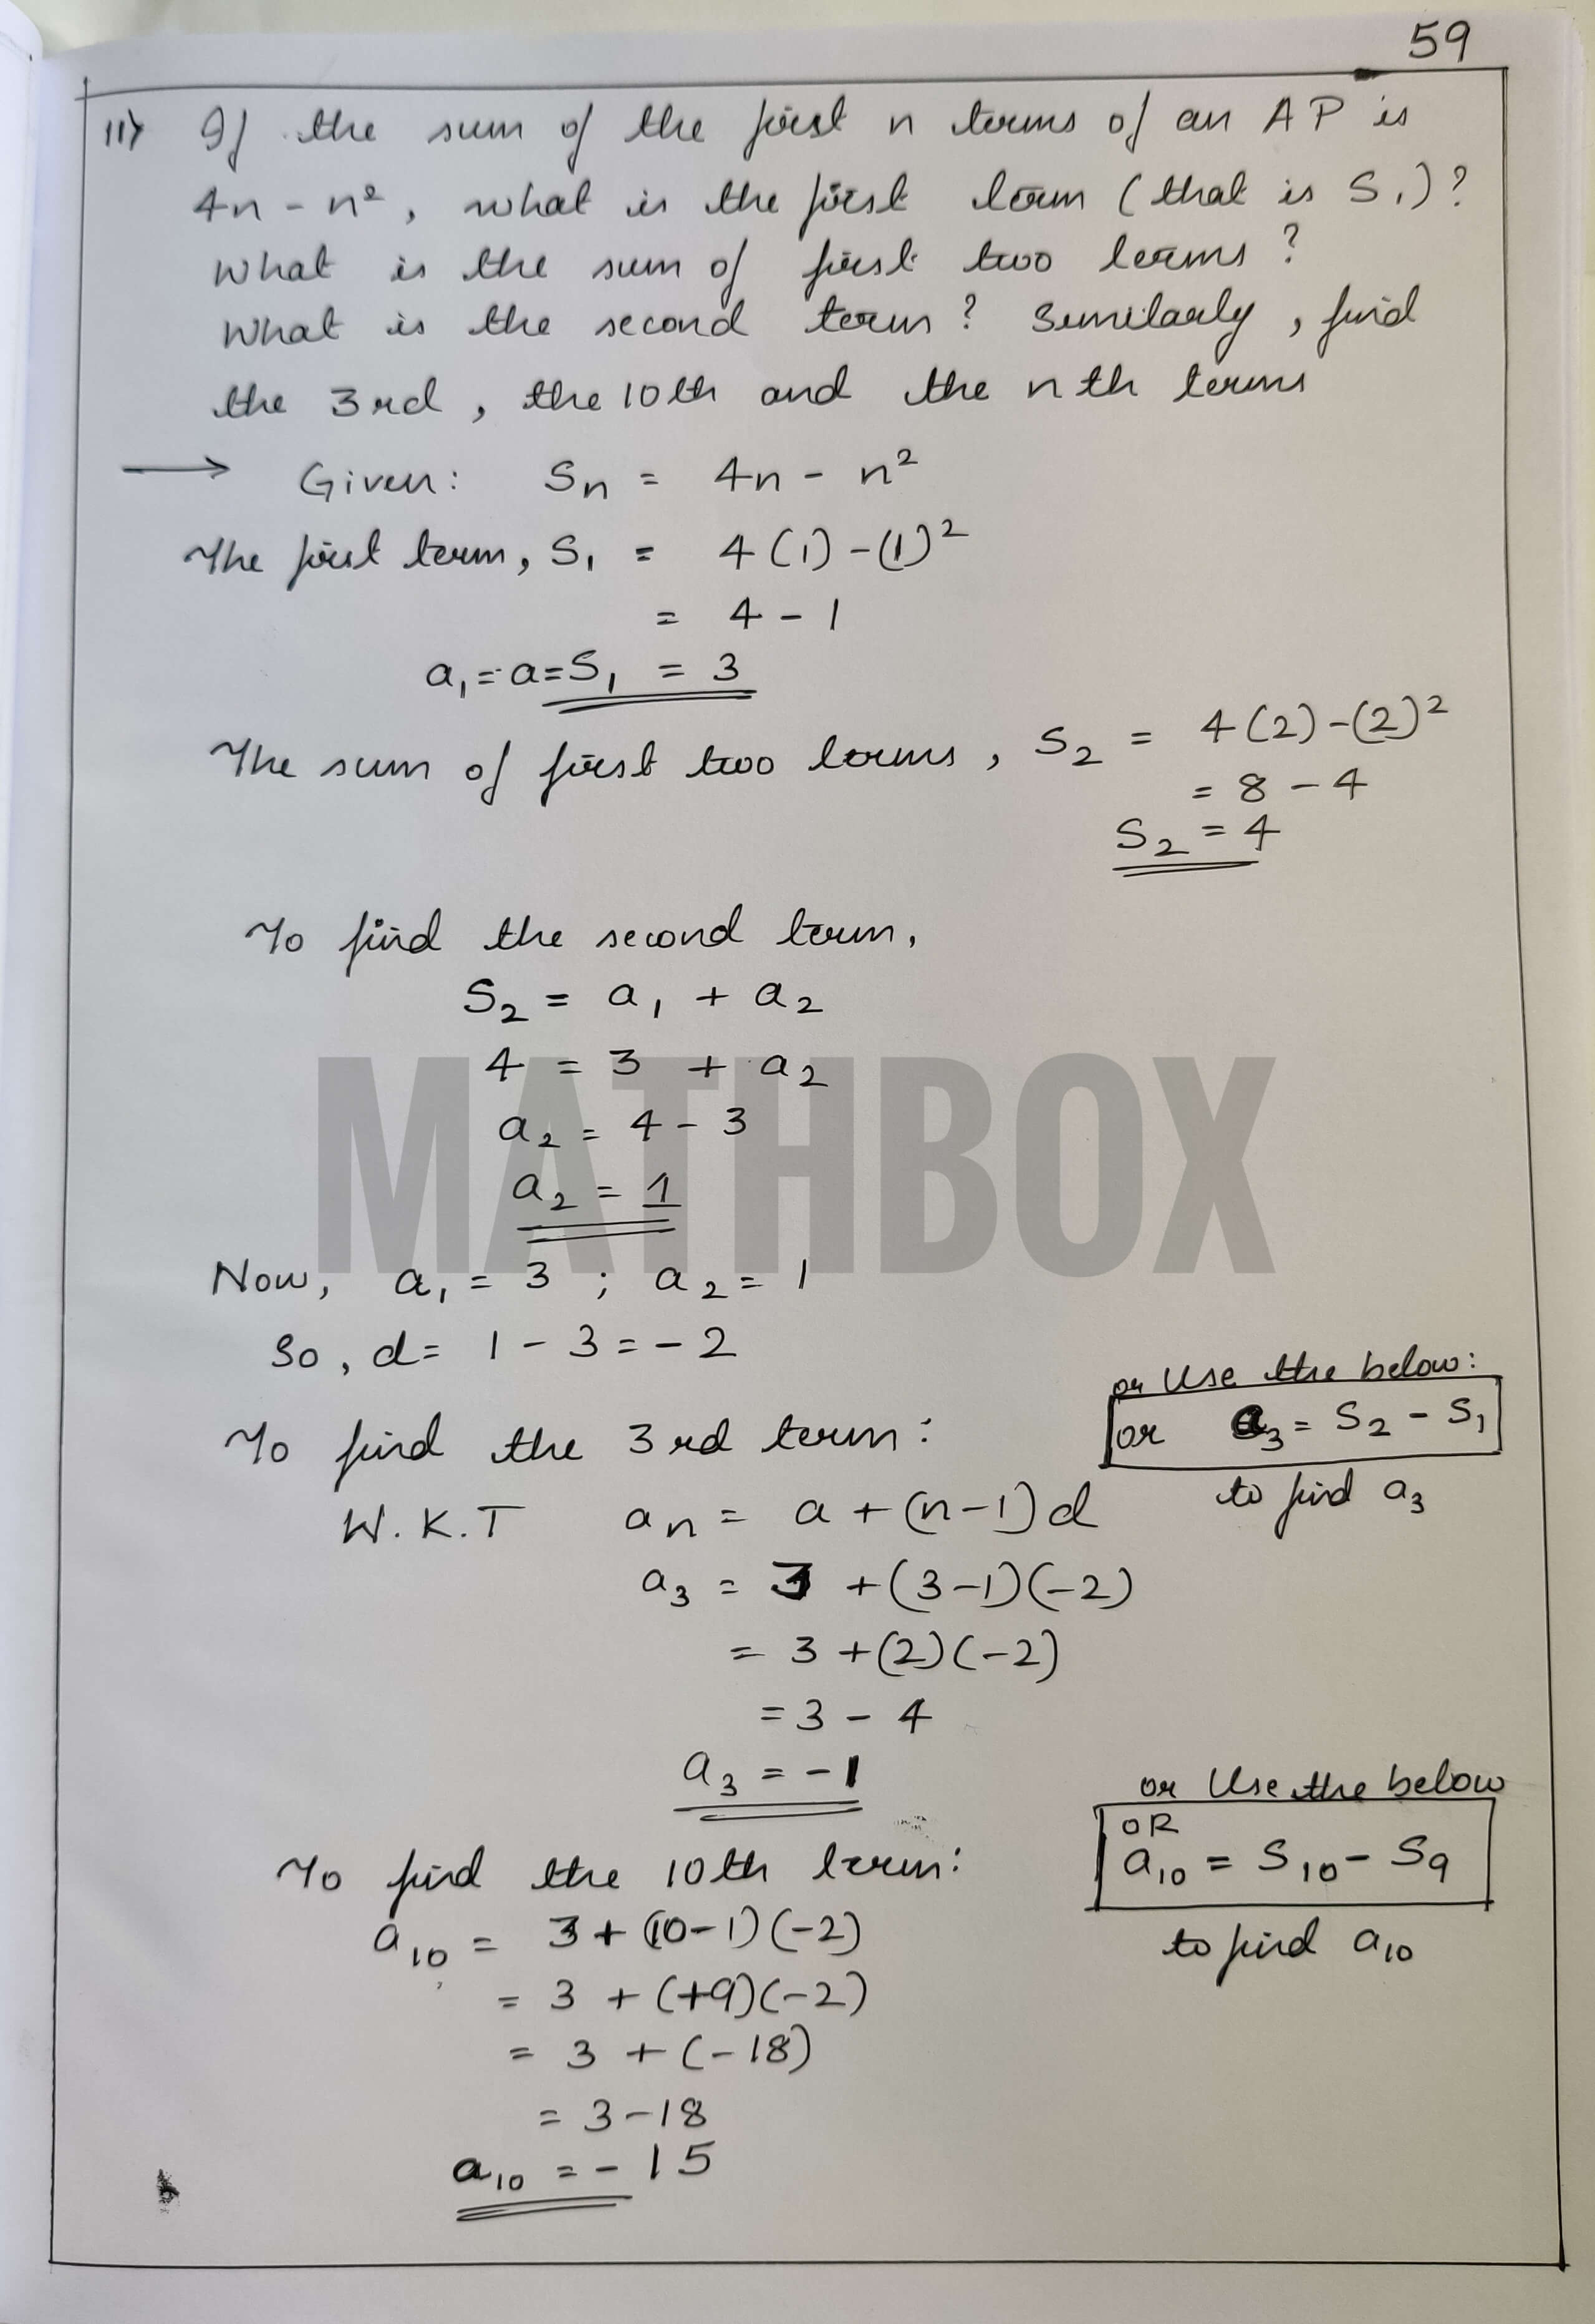 59
11) If the sum of the first n terms of an AP is
4n - n², what is the first term (that is S₁)?
What is the sum of first two terms?
What is the second term? Similarly, find
the 3rd, the 10th and the nth terms
→ Given: Sₙ = 4n - n²
The first term, S₁ = 4(1) - (1)²
= 4 - 1
a₁ = a = S₁ = 3
The sum of first two terms, S₂ = 4(2) - (2)²
= 8 - 4
S₂ = 4
To find the second term,
S₂ = a₁ + a₂
4 = 3 + a₂
a₂ = 4 - 3
a₂ = 1
MATHBOX
Now, a₁ = 3 ; a₂ = 1
So, d = 1 - 3 = -2
or Use the below:
or a₃ = S₂ - S₁
to find a₃
To find the 3rd term:
W.K.T aₙ = a + (n-1)d
a₃ = 3 + (3-1)(-2)
= 3 + (2)(-2)
= 3 - 4
a₃ = -1
or Use the below
OR
a₁₀ = S₁₀ - S₉
to find a₁₀
To find the 10th term:
a₁₀ = 3 + (10-1)(-2)
= 3 + (+9)(-2)
= 3 + (-18)
= 3 - 18
a₁₀ = -15